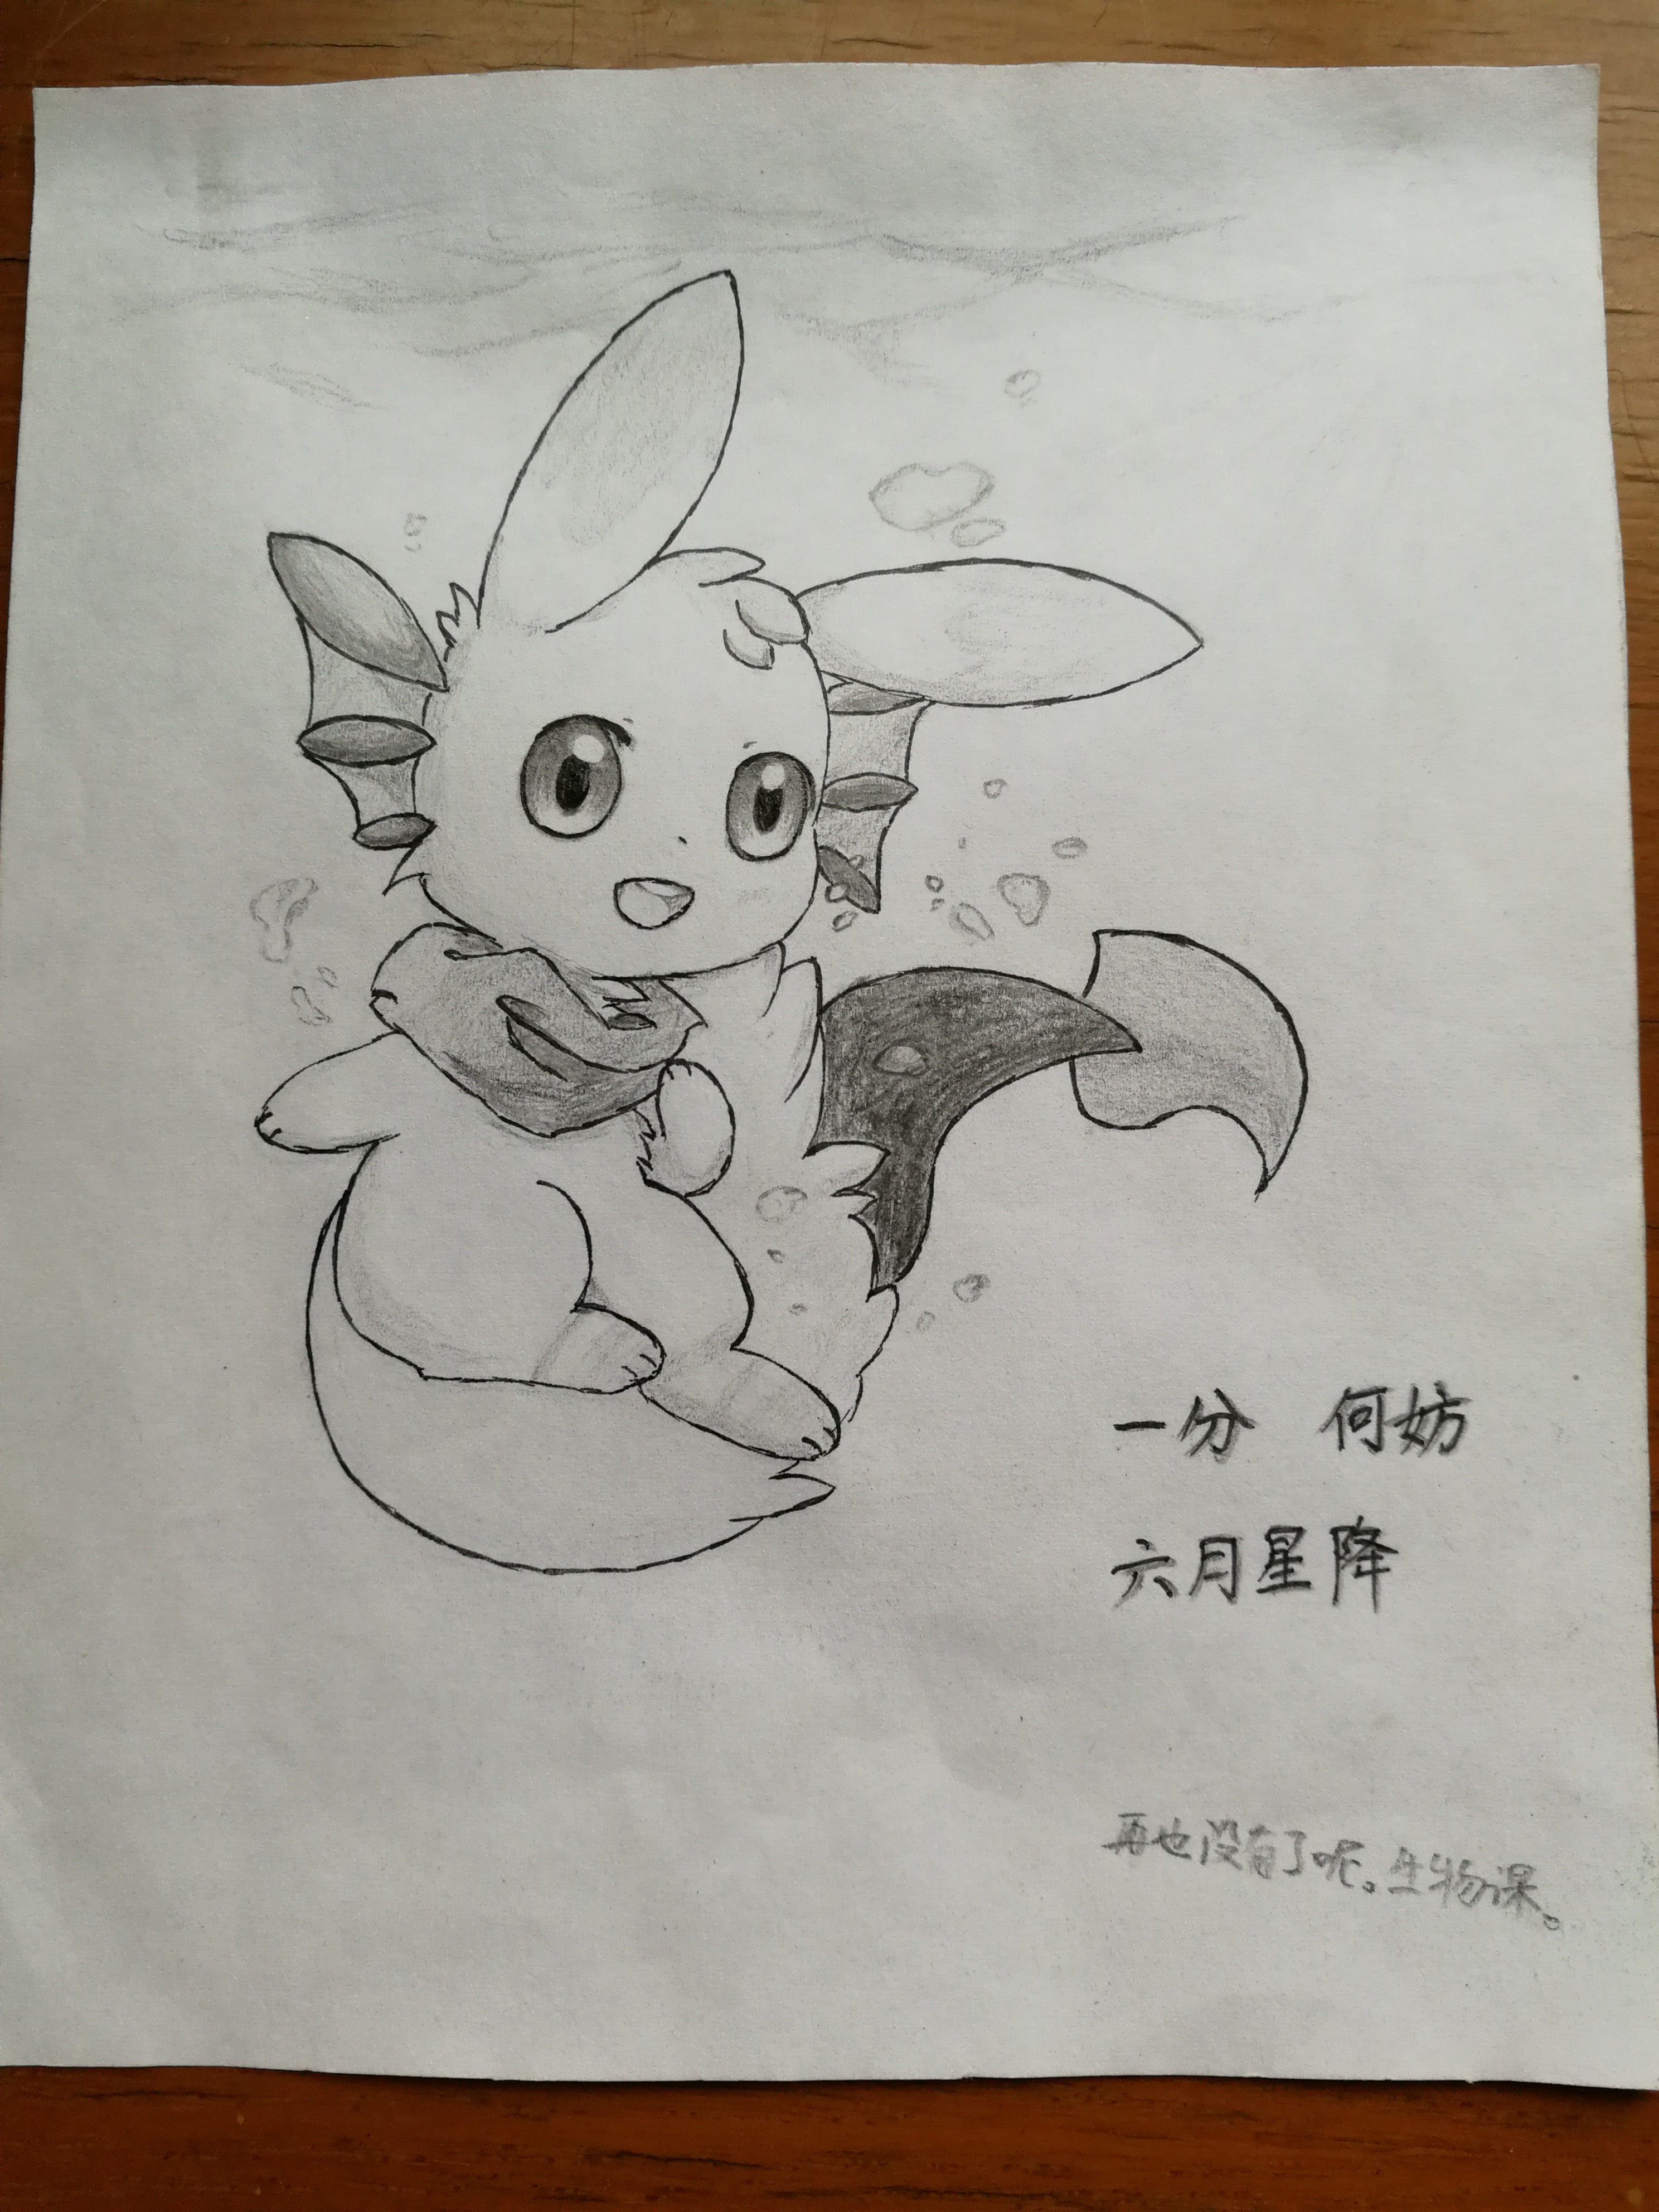 一分 何妨
六月星降
再也没有了呢。生物课。